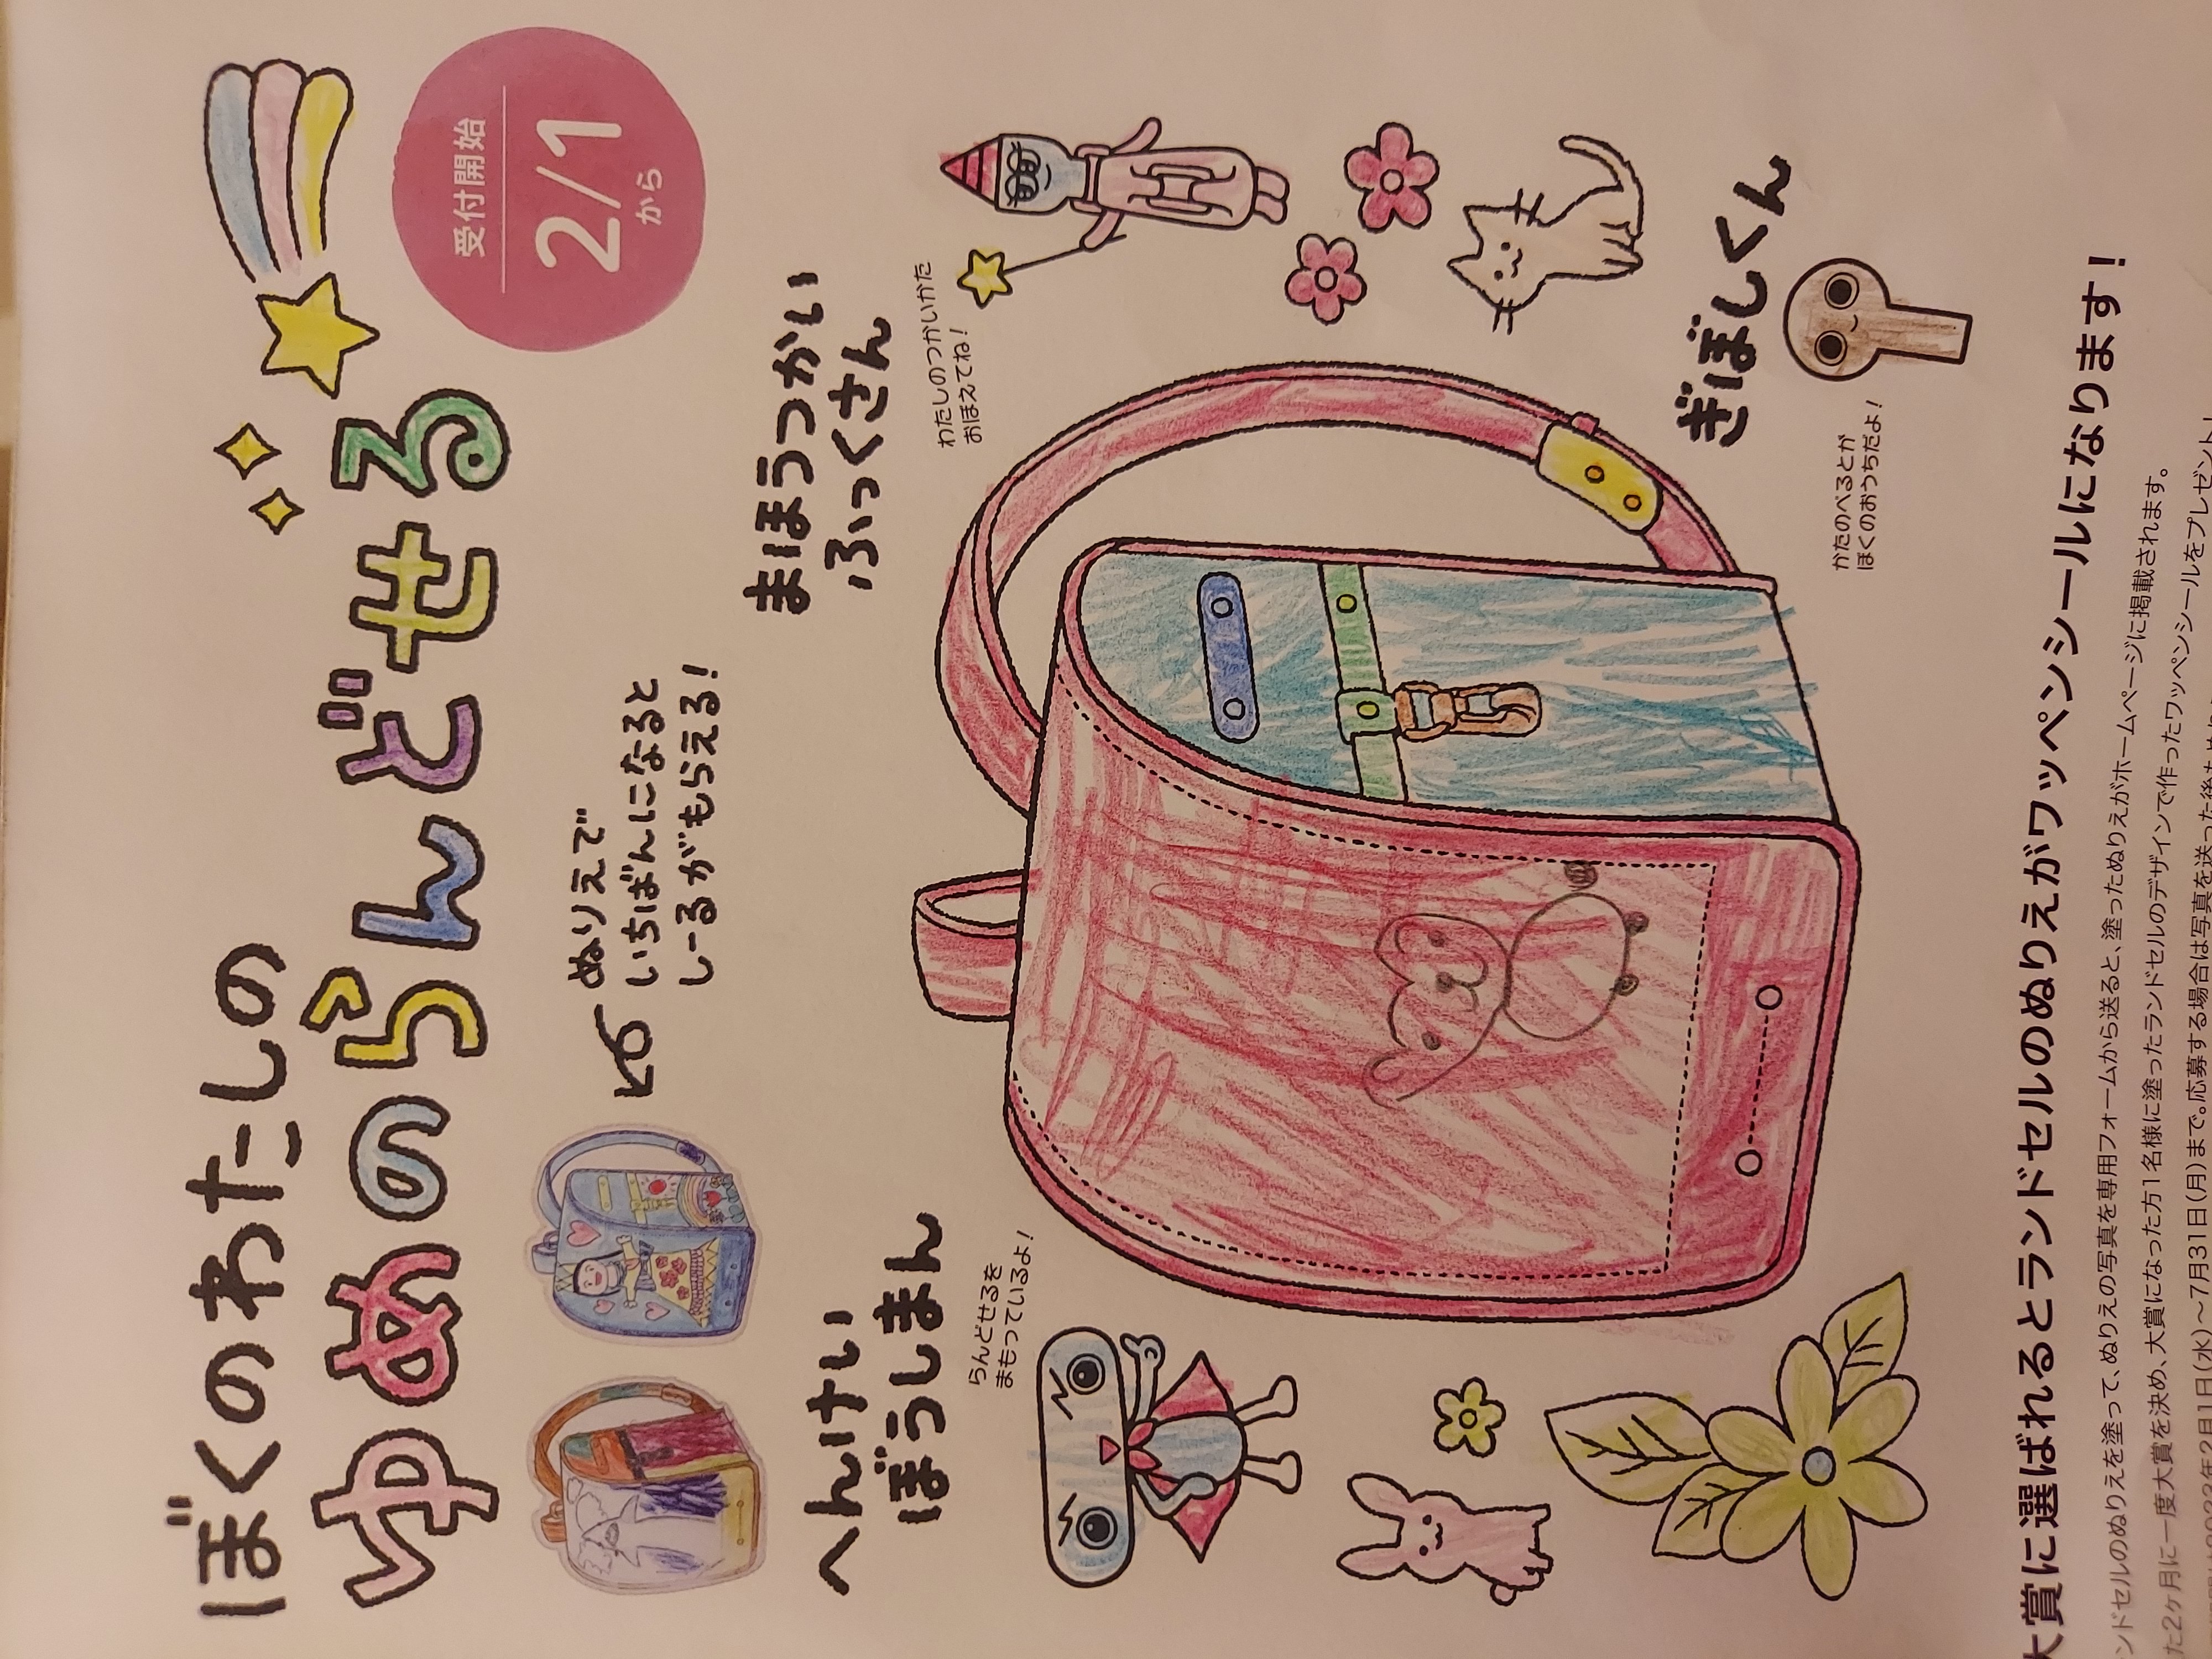 ぼくのわたしの
ゆめのらんどせる
受付開始
2/1
から
ぬりえで
いちばんになると
しーるがもらえる!
まほうつかい
ふっくさん
わたしのつかいかた
おぼえてね!
へんけい
ぼうしまん
らんどせるを
まもっているよ!
ぎぼしくん
かたのべるとが
ぼくのおうちだよ!
大賞に選ばれるとランドセルのぬりえがワッペンシールになります!
ンドセルのぬりえを塗って、ぬりえの写真を専用フォームから送ると、塗ったぬりえがホームページに掲載されます。
た2ヶ月に一度大賞を決め、大賞になった方1名様に塗ったランドセルのデザインで作ったワッペンシールをプレゼント!
2023年2月1日(水)〜7月31日(月)まで。応募する場合は写真を送った後も